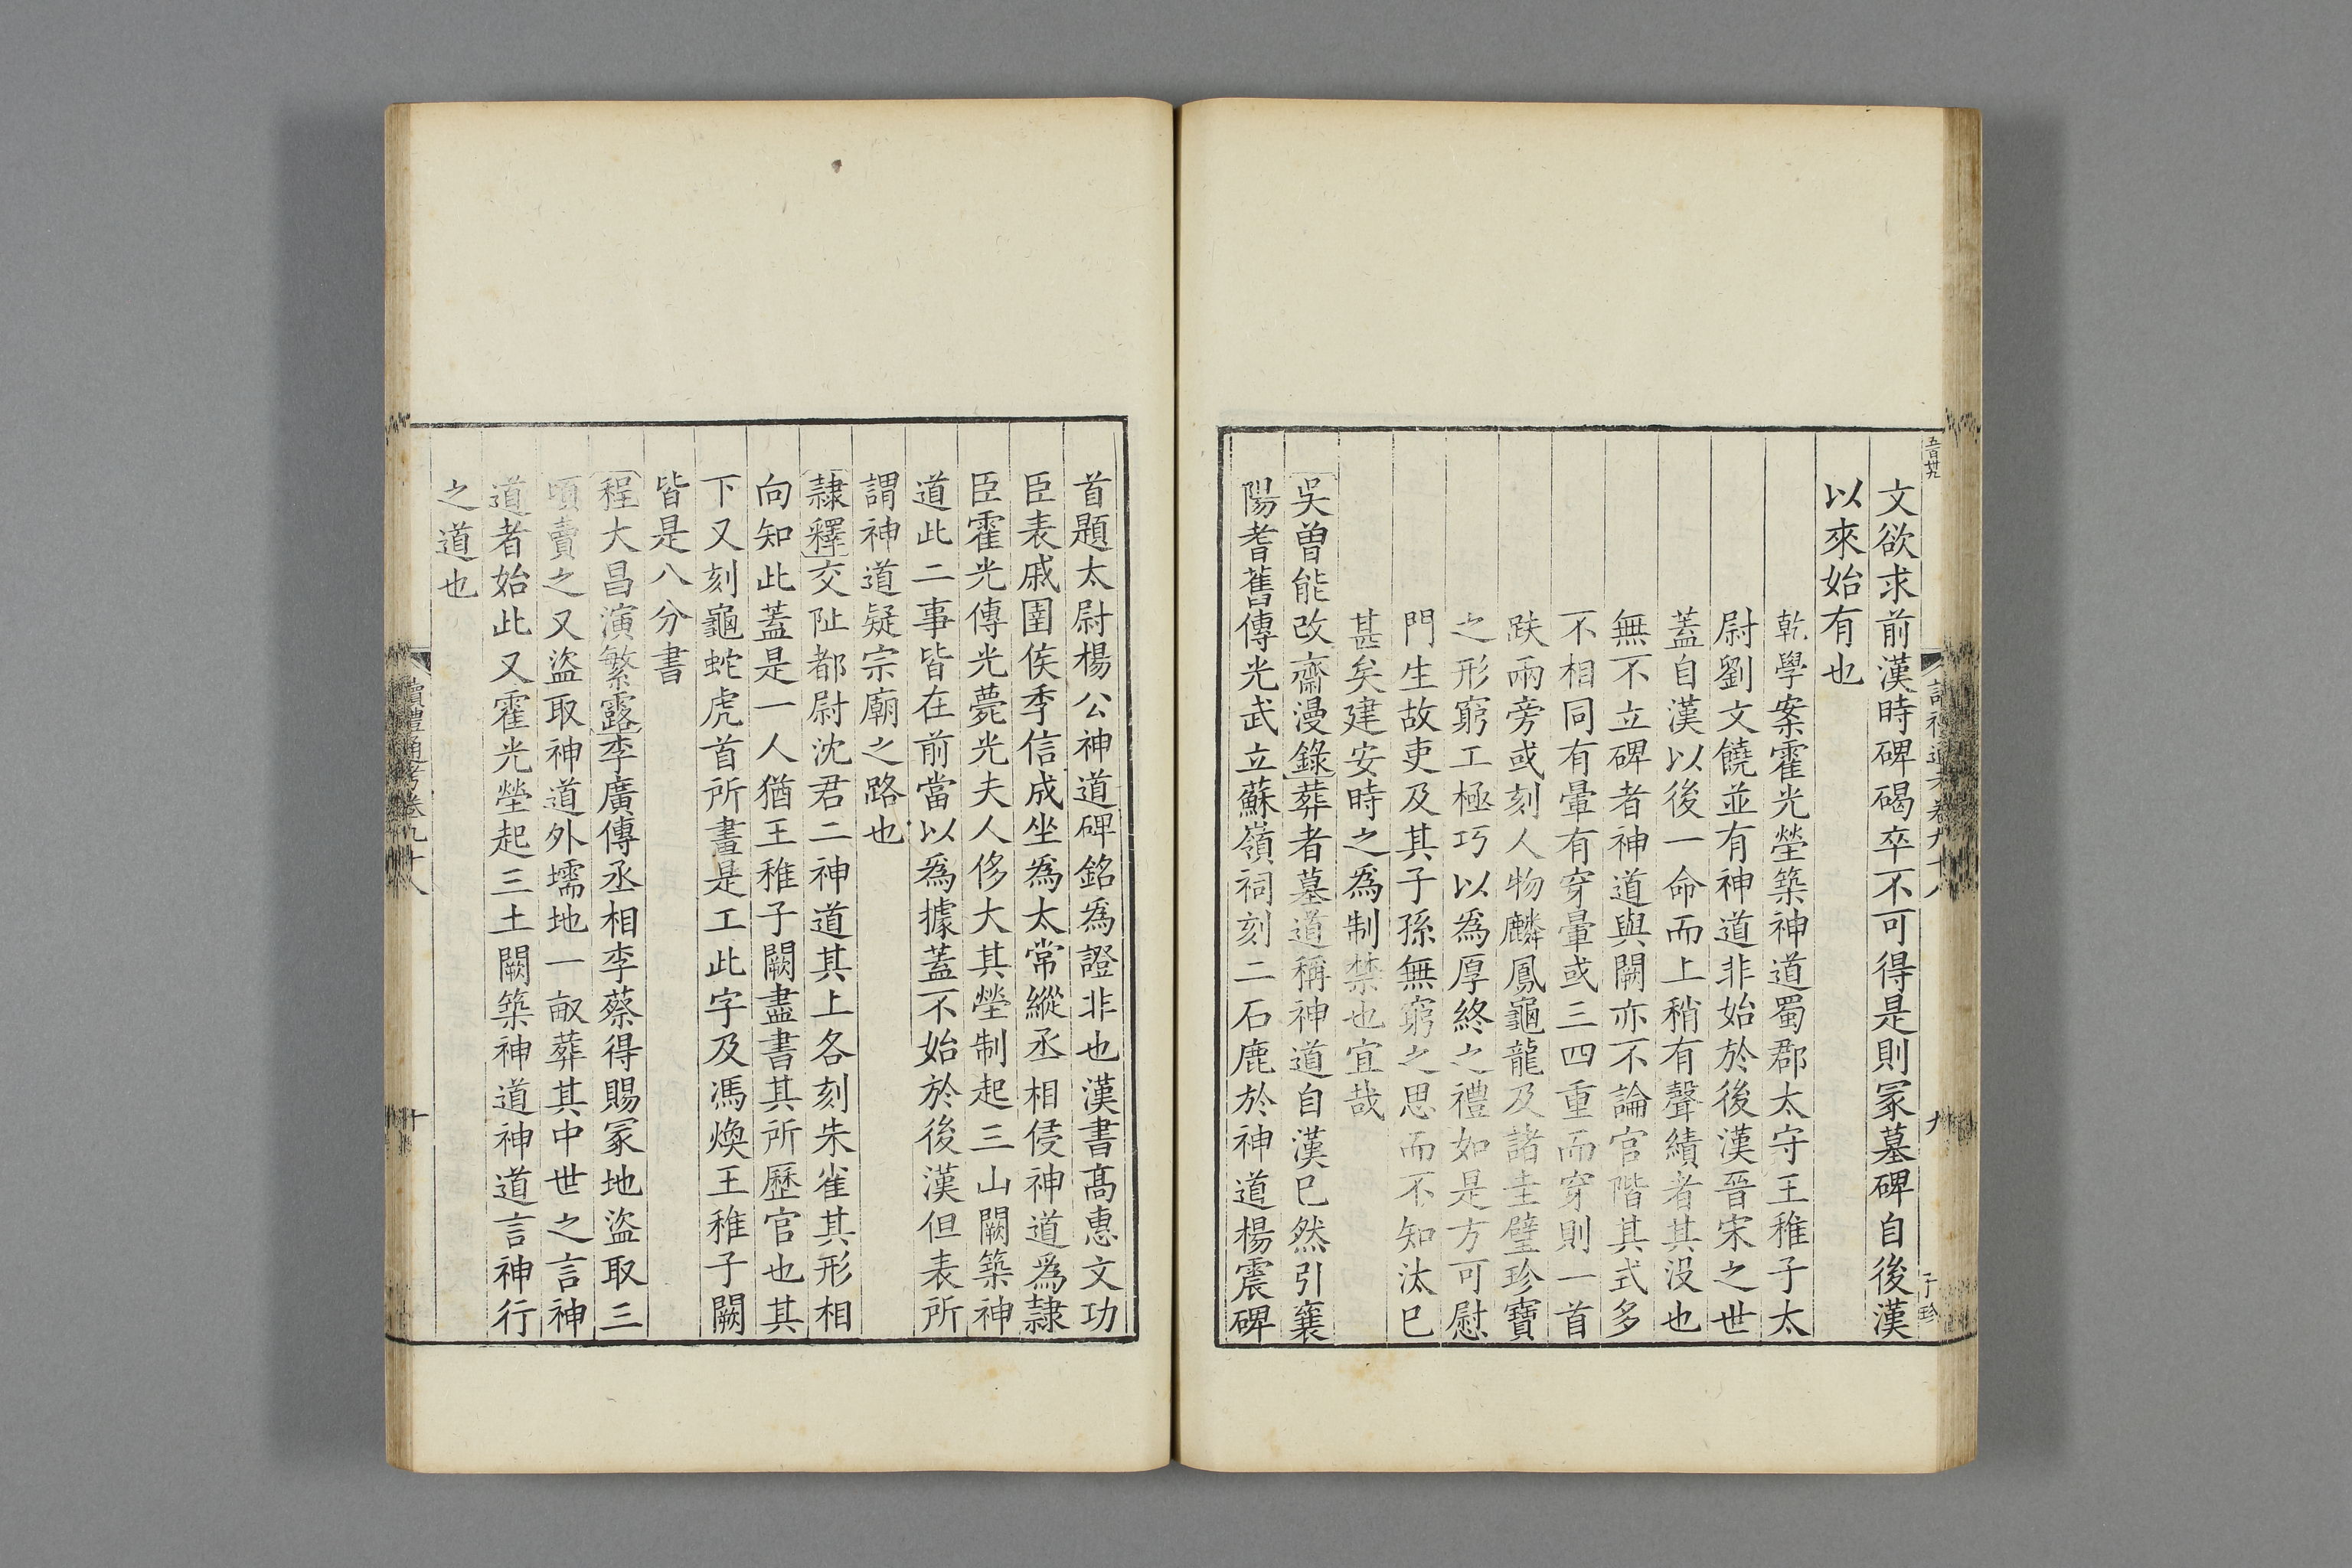 文欲求前漢時碑碣卒不可得是則冢墓碑自後漢
以來始有也
乾學案霍光塋築神道蜀郡太守王稚子太
尉劉文饒並有神道非始於後漢晉宋之世
蓋自漢以後一命而上稍有聲績者其没也
無不立碑者神道與闕亦不論官階其式多
不相同有暈有穿暈或三四重而穿則一首
趺兩旁或刻人物麟鳳龜龍及諸圭璧珍寶
之形窮工極巧以為厚終之禮如是方可慰
門生故吏及其子孫無窮之思而不知汰已
甚矣建安時之為制禁也宜哉
吳曾能改齋漫錄葬者墓道稱神道自漢已然引襄
陽耆舊傳光武立蘇嶺祠刻二石鹿於神道楊震碑
首題太尉楊公神道碑銘為證非也漢書高惠文功
臣表戚圉侯季信成坐為太常縱丞相侵神道為隷
臣霍光傳光薨光夫人侈大其塋制起三山闕築神
道此二事皆在前當以為據蓋不始於後漢但表所
謂神道疑宗廟之路也
隷釋交阯都尉沈君二神道其上各刻朱雀其形相
向知此蓋是一人猶王稚子闕盡書其所歷官也其
下又刻龜蛇虎首所畫是工此字及馮煥王稚子闕
皆是八分書
程大昌演繁露李廣傳丞相李蔡得賜冢地盜取三
頃賣之又盜取神道外壖地一畝葬其中世之言神
道者始此又霍光塋起三土闕築神道神道言神行
之道也
讀禮通考卷九十八
十